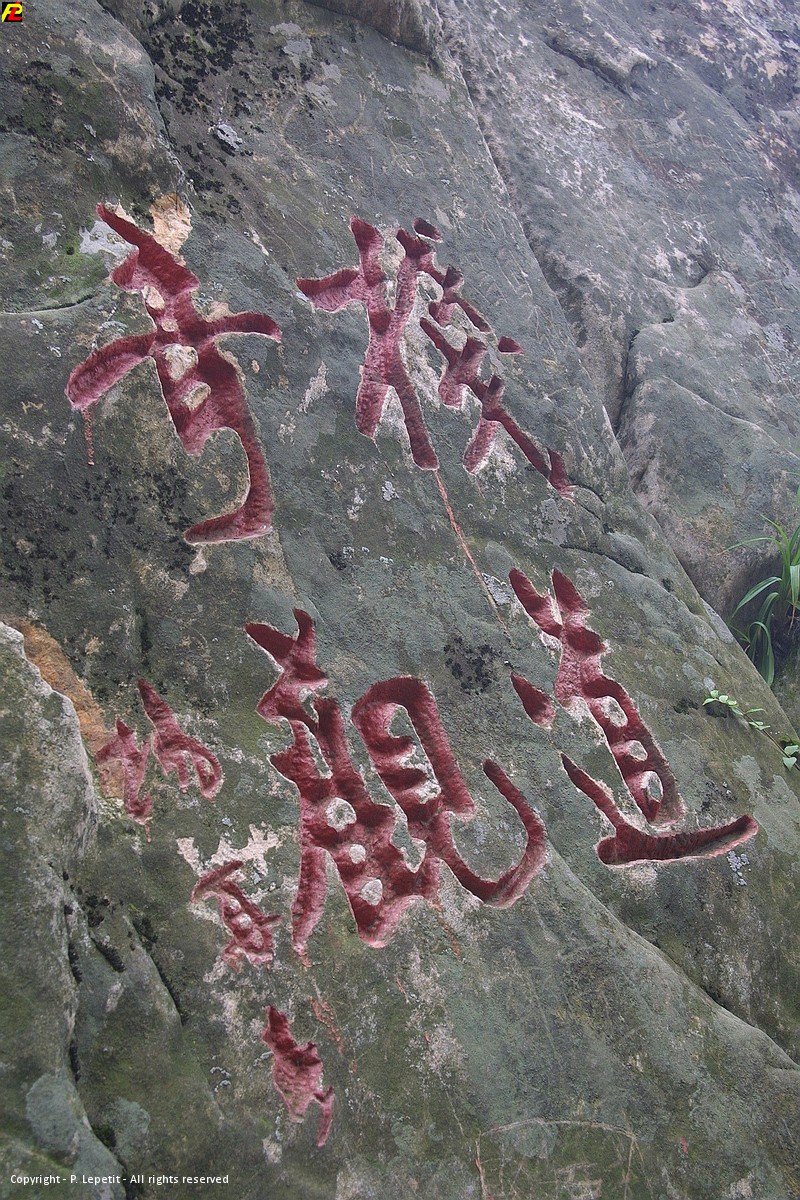 棧道
奇觀
Copyright - P. Lepetit - All rights reserved